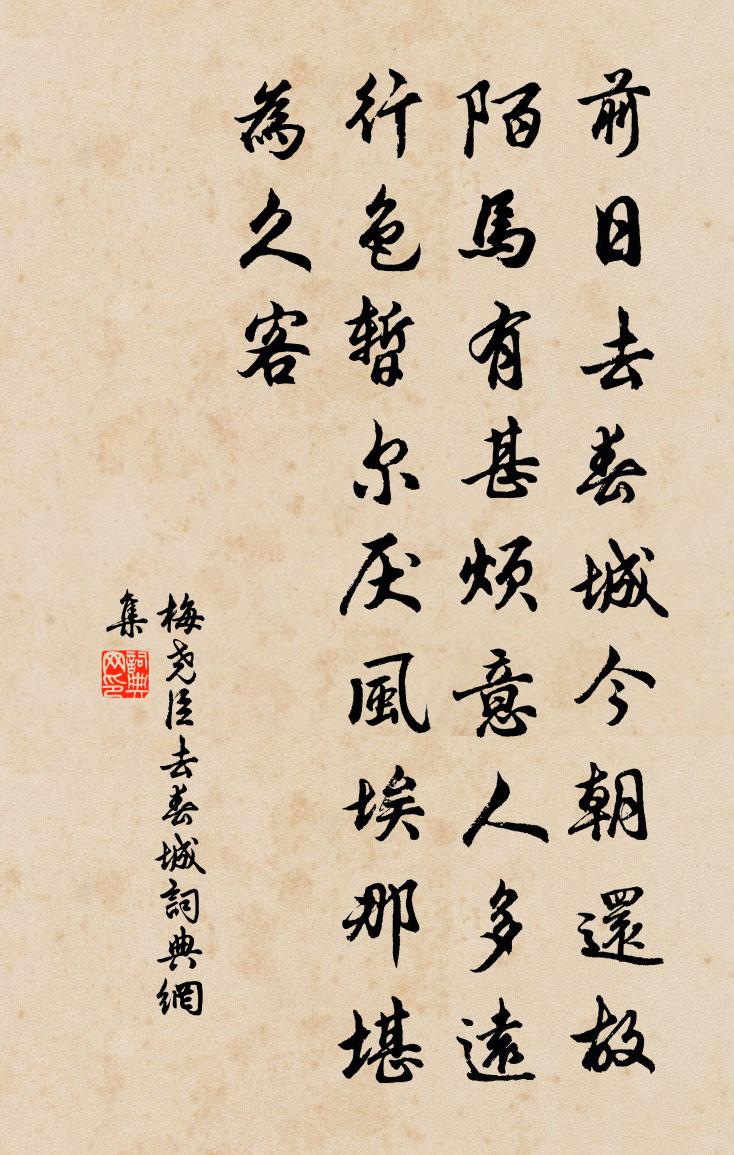 前日去春城今朝還故
陌馬有甚煩意人多遠
行色暫尔厌風埃那堪
為久客
梅堯臣去春城詞典網
集
詞典
网印